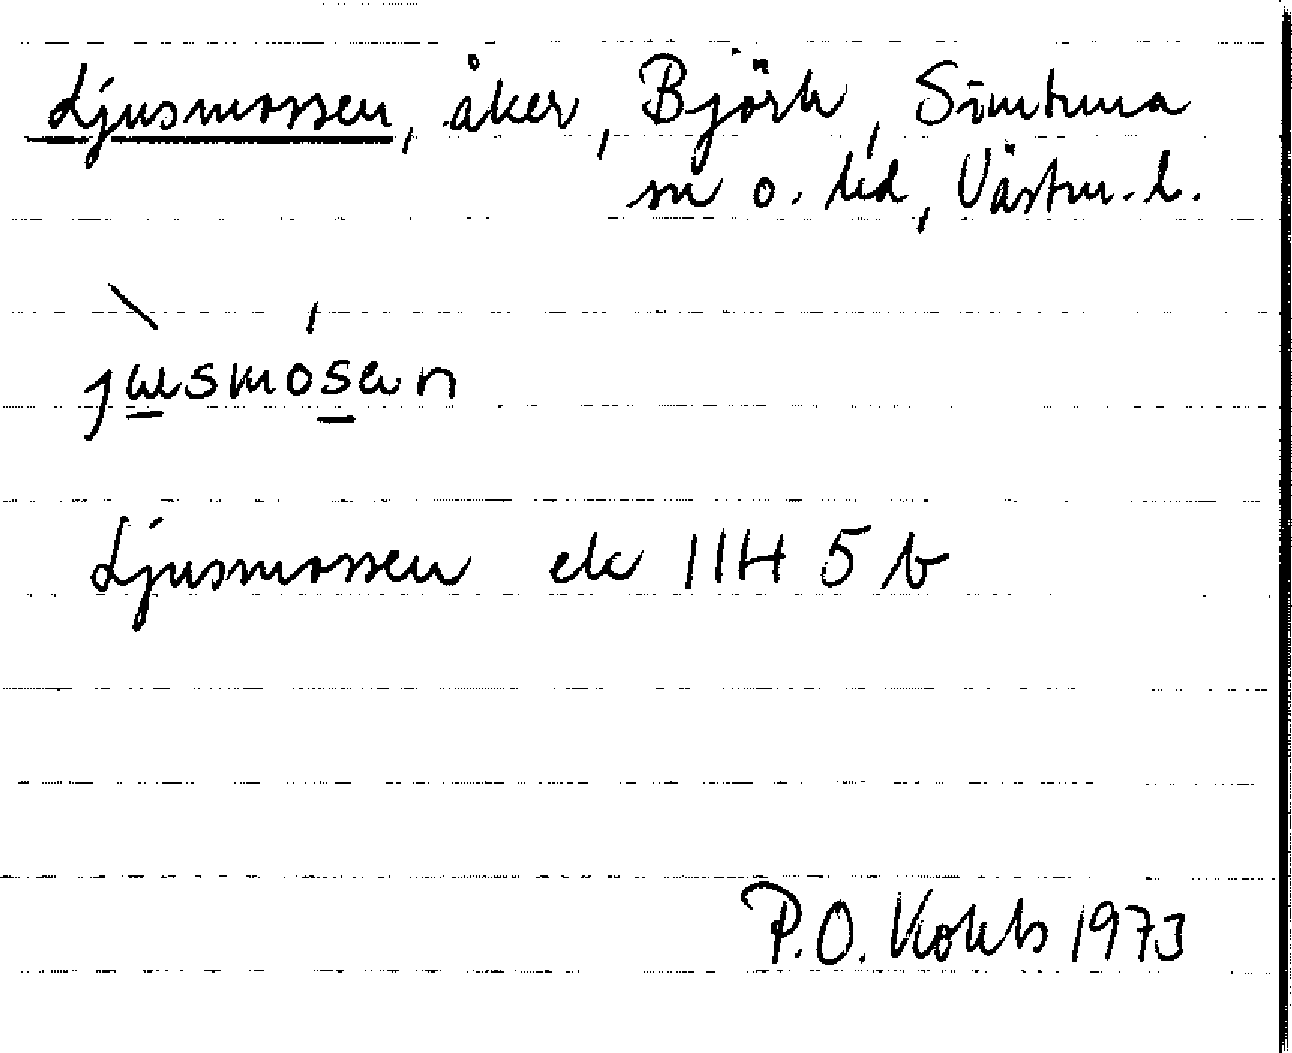 Ljusmossen, åker, Björk, Simtuna
sn o. hd, Västm. l.
jusmosen
Ljusmossen ek 11H 5 b
P.O. 1973